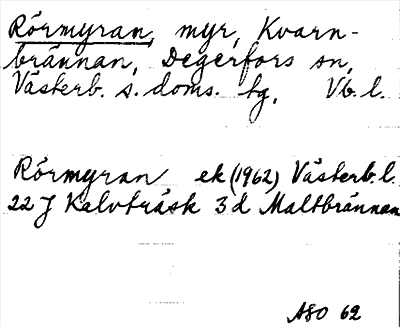 Rörmyran, myr, Kvarn-
brännan, Degerfors sn,
Västerb. s. doms. tg, Vb. l.
Rörmyran ek (1962) Västerb. l.
22 J Kalvträsk 3 d Maltbrännan
ASO 62